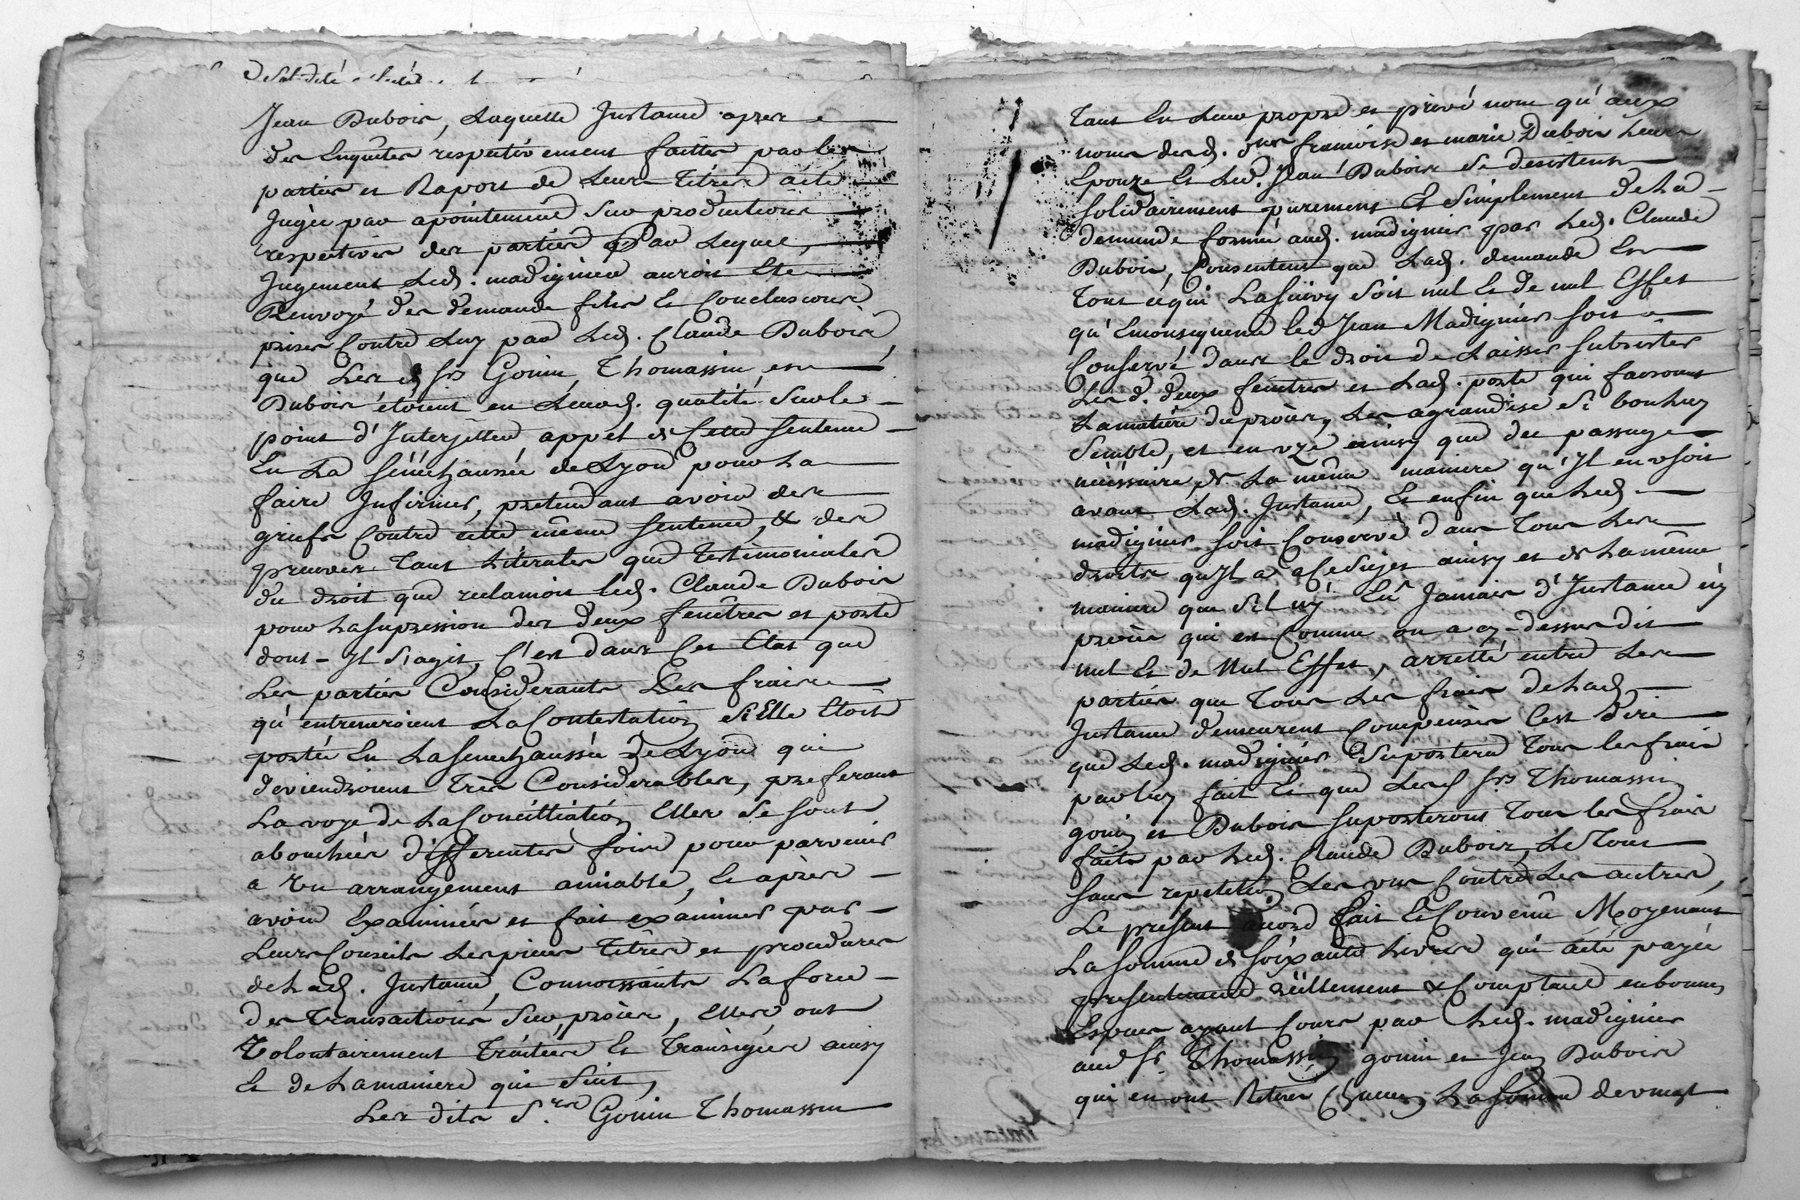 Jean Dubois, Laquelle Instance apres
des Enquêtes respectivement faittes par les
parties et Raport de Leurs Titres a été
Jugée par apointement sur productions
respectives des parties Par Lequel
Jugement Led. madignier auroit Eté
Renvoyé des demande fins Et Conclusions
prises Contre Luy par Led. Claude Dubois
que Les d. srs Gonin Thomassin et
Dubois étoient en Leursd. qualité sur le
point d'Interjetter appel de Cette sentence
En La sénéchaussée de Lyon pour La
faire Infirmer, pretendant avoir des
griefs Contre cette même sentence, & des
preuves tant Litérales que testimoniales
du droit que reclamoit Led. Claude Dubois
pour La supression des deux fenêtres et porte
dont Il s'agit, C'est dans Cet Etat que
Les parties Considerants Les frais
qu'entreneroient La Contestation si Elle Etoit
portée En La senechaussée de Lyon qui
deviendroient très Considerables, preferant
La voye de La Concilliation Elles se sont
abouchées differentes fois pour parvenir
a un arrangement amiable, Et après
avoir Examinées et fait examiner par
Leurs Conseils Les pieces Titres et procedures
de Lad. Instance, Connoissants La force
des transactions sur procès, Elles ont
volontairement traitées Et transigées ainsy
Et de La maniere qui suit,
Les dits Srs. Gonin Thomassin
tant En Leur propre et privé nom qu'aux
noms desd. françoise et marie Dubois Leurs
Epouze Et Led. Jean Dubois se desistent
solidairement purement Et simplement de La
demande formé aud. madignier par Led. Claude
Dubois, Consentent que Lad. demande Et
tout ce qui La suivy soit nul Et de nul Effet
qu'En consequence led Jean Madignier soit
Conservé dans le droit de Laisser subsister
Les d. deux fenêtres et Lad. porte qui faisoient
La matière du procès, Les agrandire si bon Luy
semble, et en uzé ainsy que du passage
nécessaire, de La même maniere qu'Il en usoit
avant Lad. Instance, Et enfin que Led.
madignier soit Conservé dans tous Les
droits qu'Il a a Ce sujet ainsy et de La même
maniere que s'il n'y Eu Jamais d'Instance ny
procès qui est Comme on a cy-dessus dit
nul Et de Nul Effet, arretté entre Les
parties que tous Les frais de Lad.
Instance demeurent Compensés C'est dire
que Led. madignier suportera tous les frais
par luy fait Et que Lesd srs Thomassin
gonin et Dubois suporterons tous les frais
faits par Led. Claude Dubois, Le tout
sans repetition Les uns Contre Les autres,
Le present acord fait Et Convenu Moyenant
La somme de soixante Livres qui a été payée
presentement réellement & Comptant en bonnes
Espaces ayant Cours par Led. madignier
aud sr. Thomassin gonin et Jean Dubois
qui en ont Retiré Chacun La somme de vingt